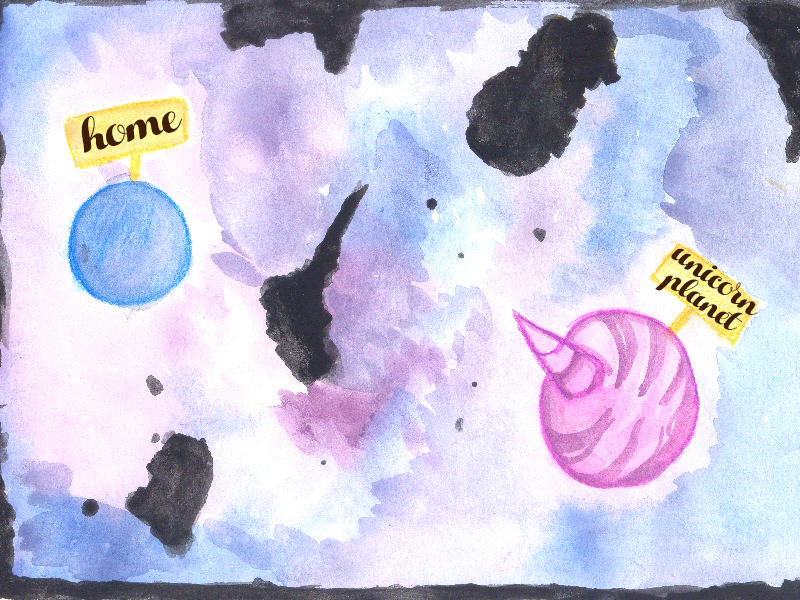 home
unicorn
planet